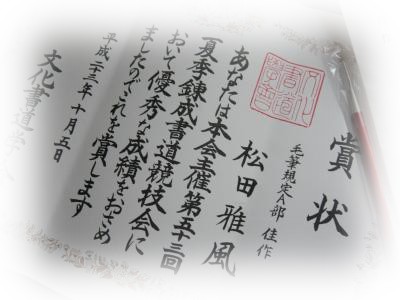 賞状
毛筆規定A部 佳作
松田雅風
あなたは本会主催第五十三回
夏季錬成書道競技会に
おいて優秀な成績をおさめ
ましたのでこれを賞します
平成二十三年十月五日
文化書道
文化書道學會